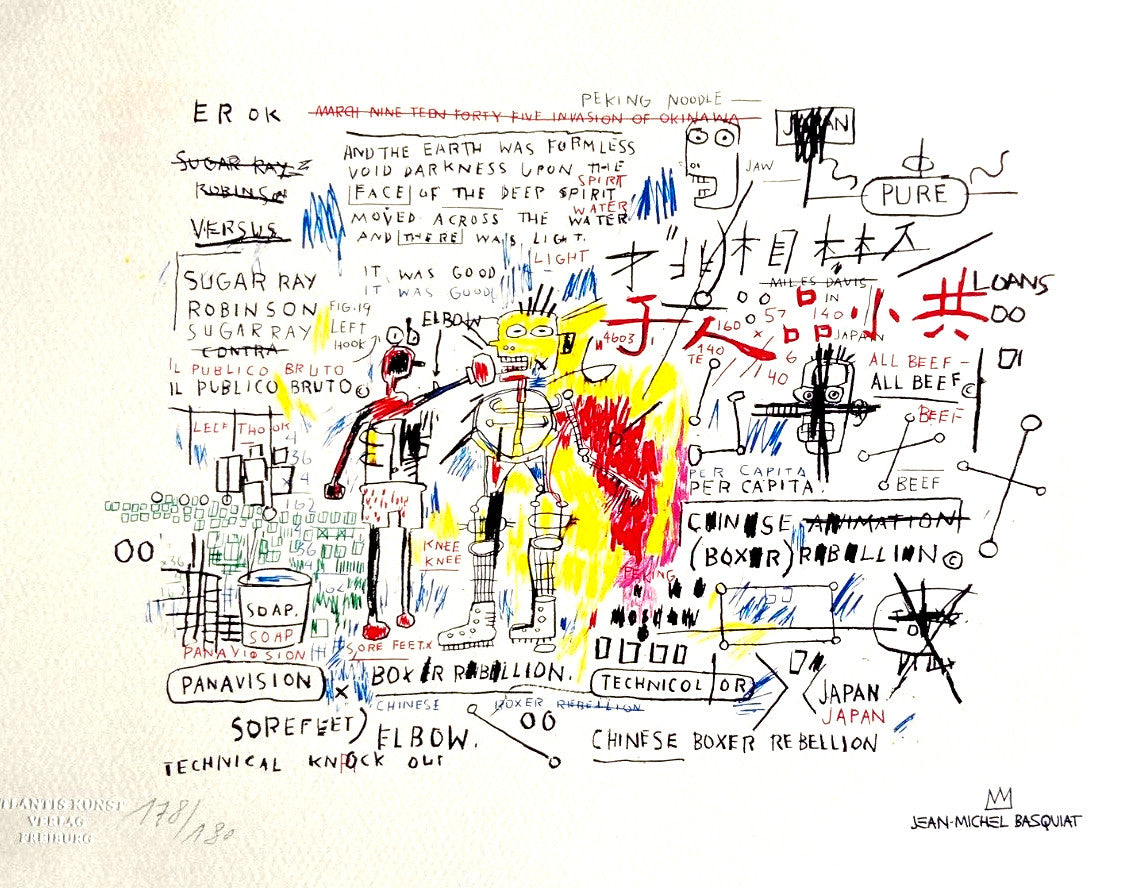 PEKING NOODLE —
EROK
MARCH NINE TEEN FORTY FIVE INVASION OF OKINAWA
JAPAN
SUGAR RAY
ROBINSON
VERSUS
AND THE EARTH WAS FORMLESS
VOID DARKNESS UPON THE
SPIRIT
FACE OF THE DEEP SPIRIT
WATER
MOVED ACROSS THE WATER
AND THERE WAS LIGHT.
LIGHT
JAW
PURE
IT WAS GOOD
IT WAS GOOD
SUGAR RAY
ROBINSON
SUGAR RAY
CONTRA
IL PUBLICO BRUTO
IL PUBLICO BRUTO©
FIG.19
LEFT
HOOK
ELBOW
木目
MILES DAVIS
IN
JAPAN
LOANS
OO
于人品小共
4603
160 × 57
140
140
TE
6
40
ALL BEEF —
ALL BEEF©
BEEF
BEEF
36
× 4
162
36
OO
PER CAPITA
PER CAPITA.
CHINESE ANIMATION
(BOXER) REBELLION©
KNEE
KNEE
PEKING
MOSCOW
SOAP.
SOAP
PANAVISION
PANAVISION
SORE FEET.X
BOXER REBELLION.
TECHNICOLOR
JAPAN
JAPAN
X
CHINESE BOXER REBELLION
OO
SOREFEET)
ELBOW.
CHINESE BOXER REBELLION
TECHNICAL KNOCK OUT
ATLANTIS KUNST
VERLAG
FREIBURG
178/180
JEAN-MICHEL BASQUIAT